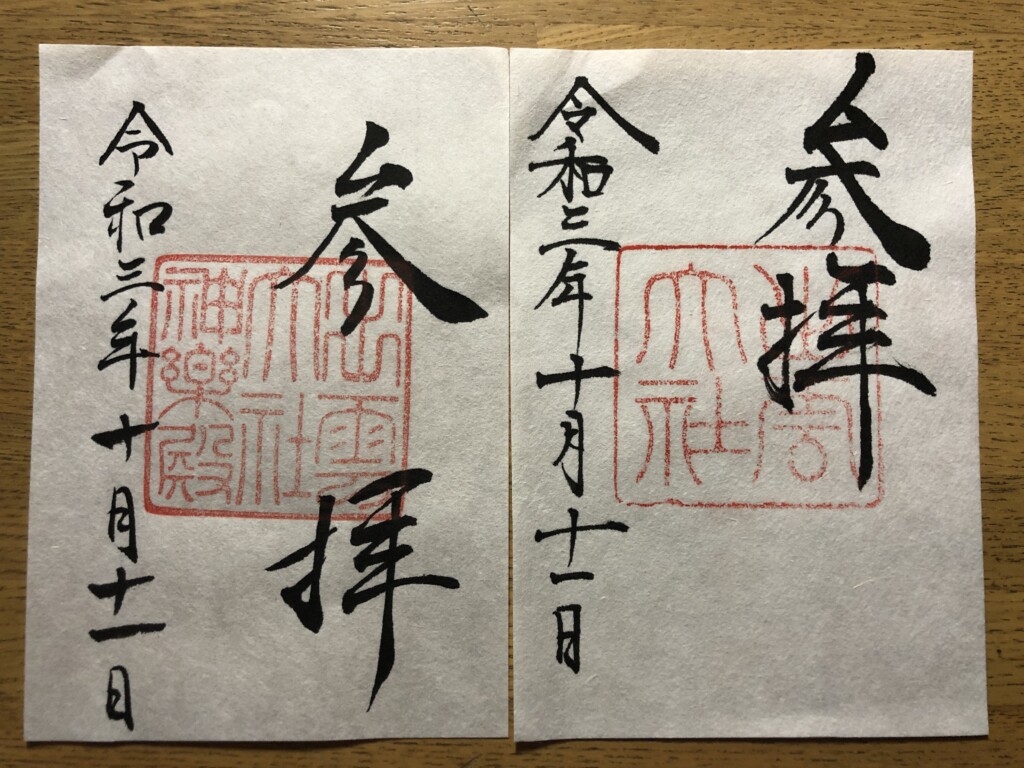 参拝
出雲
大社
神樂殿
令和三年十月十一日
参拝
大社
令和三年十月十一日